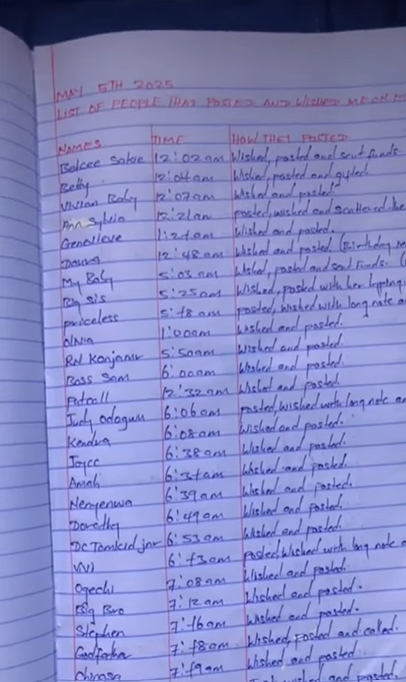 MAY 5TH 2025
LIST OF PEOPLE THAT POSTED AND WISHED ME ON
NAMES TIME HOW THEY POSTED
12:02am Wished, posted and sent funds
Betty 12:04am Wished, posted and gifted
Vivian Baby 12:07am Wished and posted
Ann Sylvia 12:21am posted, wished and scattered
Genevieve Wished and posted.
12:48am Wished and posted (Birthday
My Baby 5:03am Wished, posted and sent funds.
Big sis 5:25am Wished, posted with her
priceless posted, wished with long note
Olivia 1:00am Wished and posted.
5:50am Wished and posted.
Boss Sam 6:00am Wished and posted.
12:32am Wished and posted.
Judy Odogwu 6:06am Posted, wished with long note
Kendra 6:08am Wished and posted.
Joyce 6:38am Wished and posted.
Wished and posted.
6:39am Wished and posted.
Dorothy 6:49am Wished and posted.
6:53am Wished and posted.
VVJ Posted, Wished with long note
Ogechi 7:08am Wished and posted.
Big Bro 7:12am Wished and posted.
Stephen Wished and posted.
Godfather Wished, Posted and called.
Chinasa Wished and posted.
and posted.